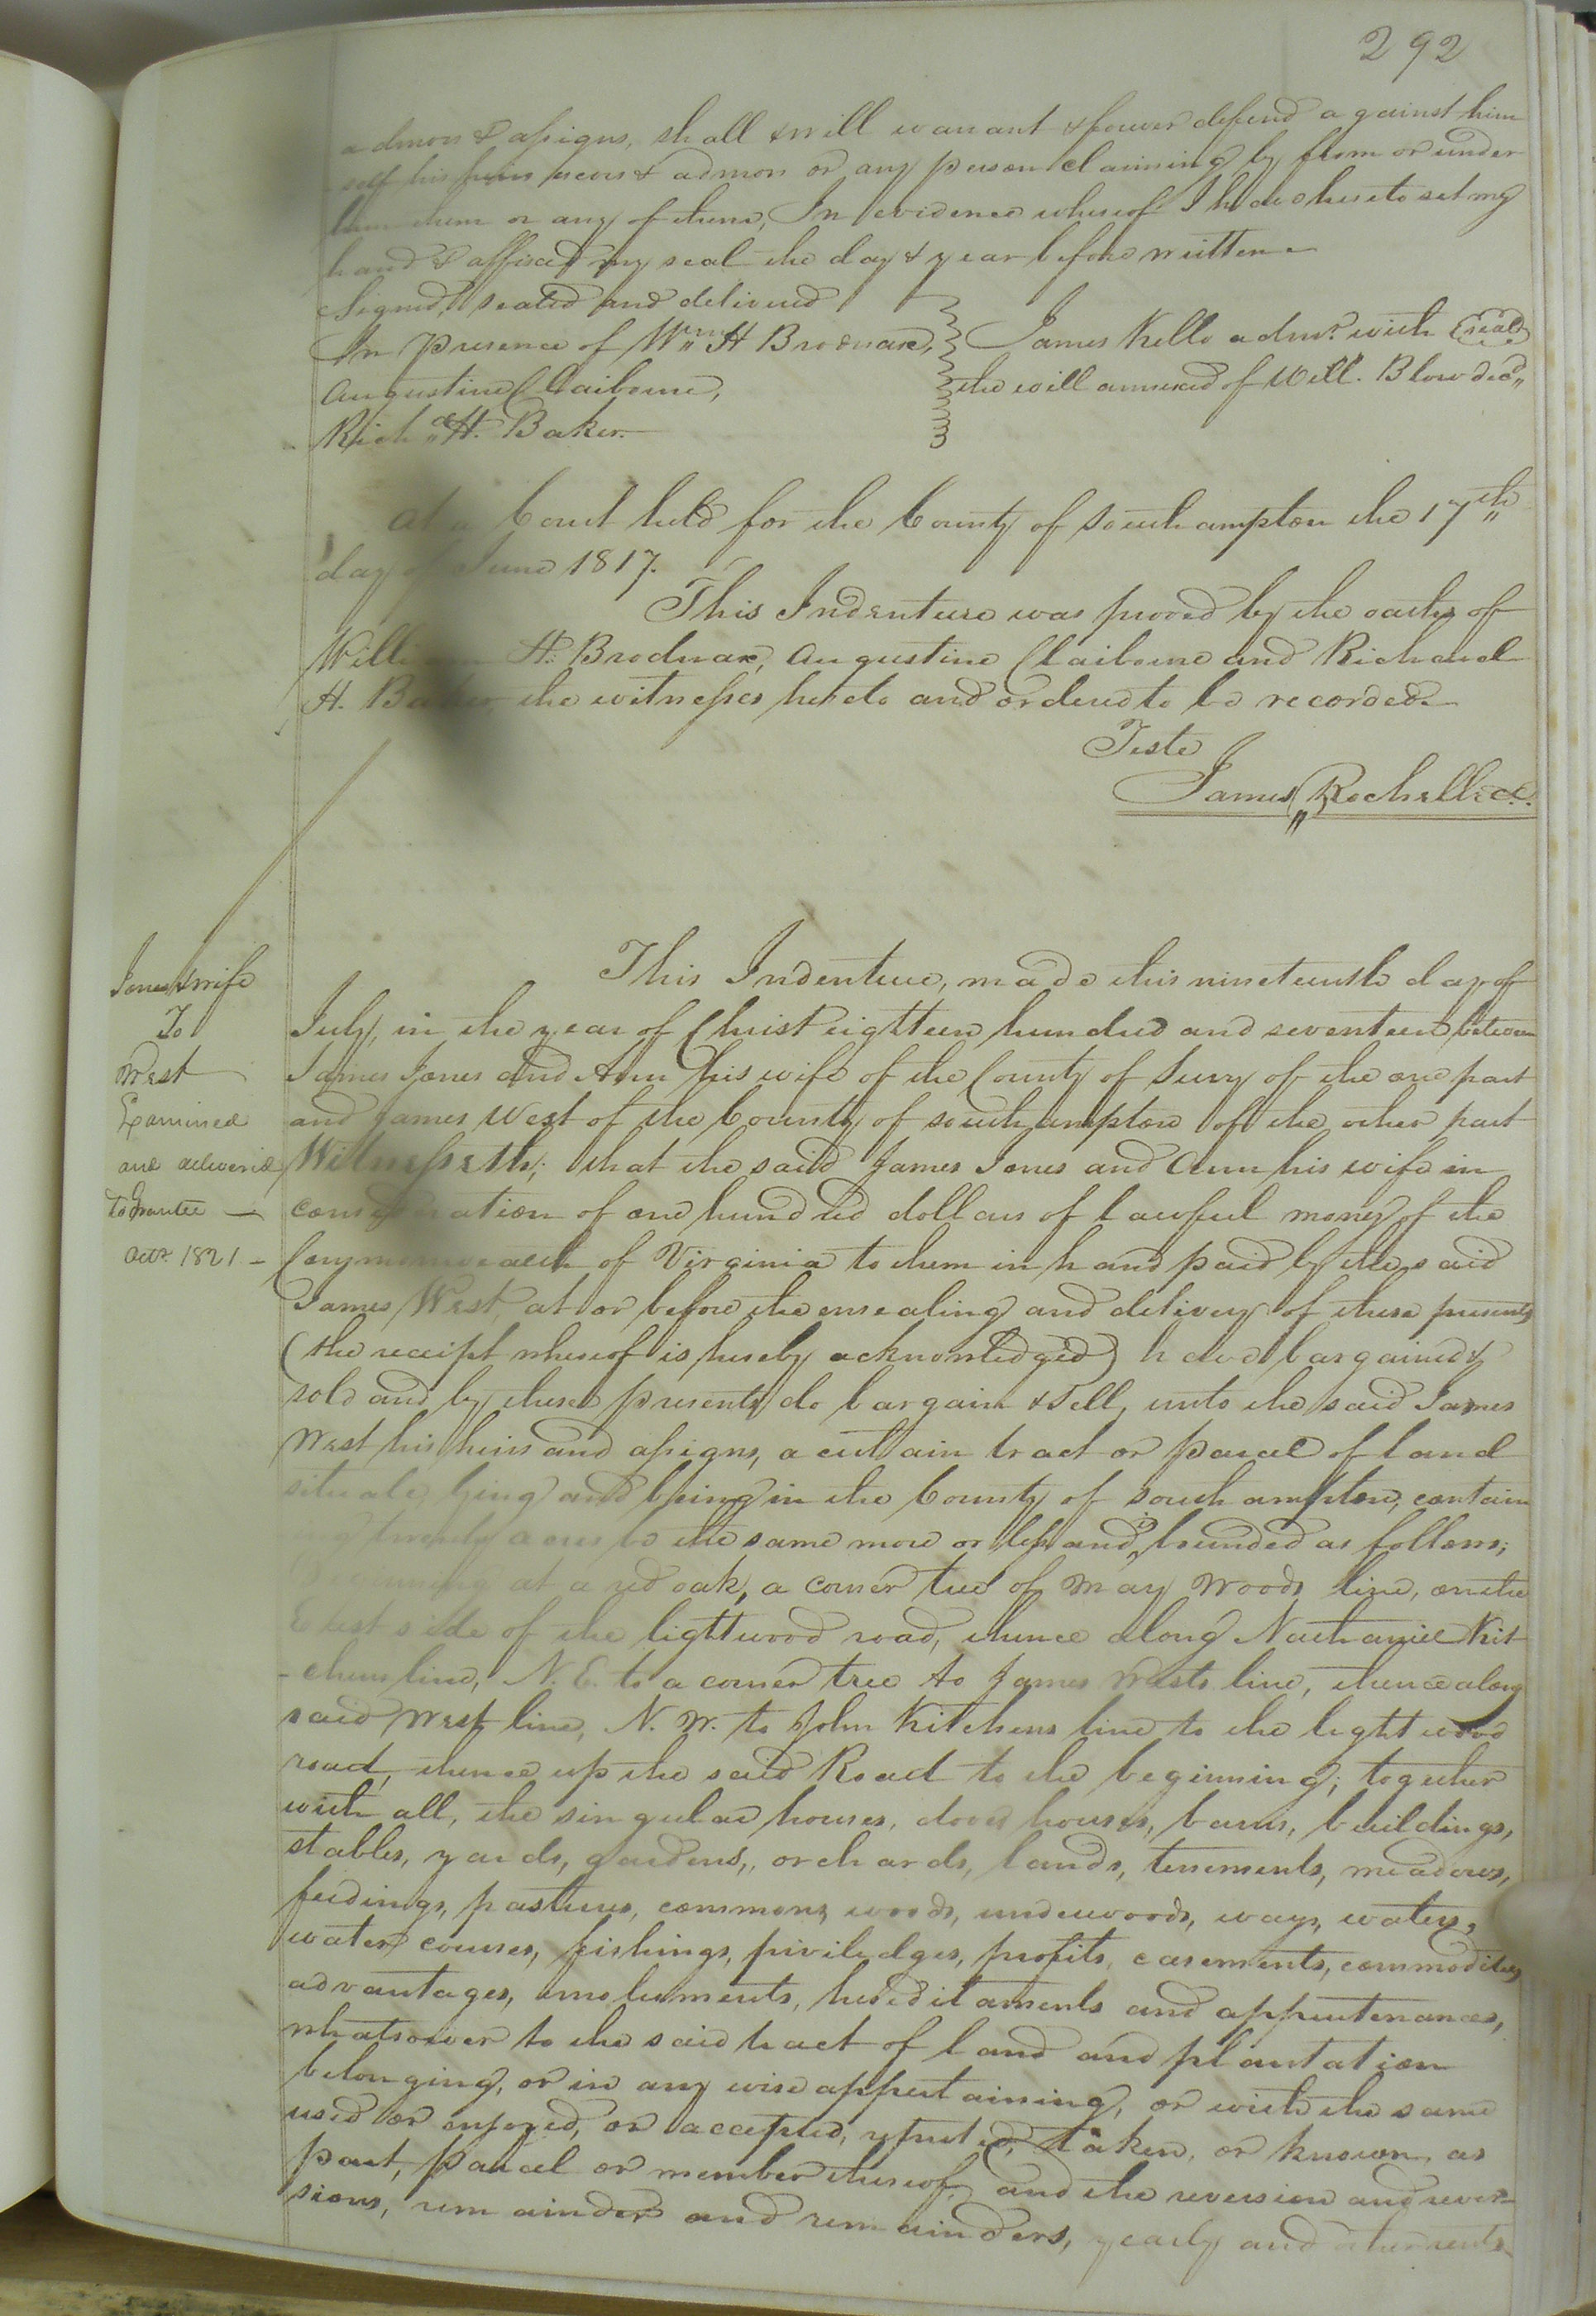 292
admors & assigns, shall & will warrant & forever defend against him
self his heirs & admors or any person claiming by from or under
him them or any of them, In evidence whereof I have hereto set my
hand & affixed my seal the day & year before written
Signed, sealed and delivered
In presence of Wm H Brodnax,
Augustine Claiborne,
Richd H. Baker.
James Kello admr. with seal
the will annexed of Will. Blow decd
At a Court held for the County of Southampton the 17th
day of June 1817.
This Indenture was proved by the oaths of
William H. Brodnax, Augustine Claiborne and Richard
H. Baker the witnesses hereto and ordered to be recorded
Teste
James Rochelle cc.
Jones & wife
To
West
Examined
and delivered
to Grantee
Octr. 1821
This Indenture, made this nineteenth day of
July, in the year of Christ eighteen hundred and seventeen between
James Jones and Ann his wife of the County of Surry of the one part
and James West of the County of Southampton of the other part
Witnesseth; that the said James Jones and Ann his wife in
consideration of one hundred dollars of lawful money of the
Commonwealth of Virginia to them in hand paid by the said
James West, at or before the ensealing and delivery of these presents
(the receipt whereof is hereby acknowledged) have bargained &
sold and by these presents do bargain & sell, unto the said James
West his heirs and assigns, a certain tract or parcel of land
situate, lying and being in the County of Southampton, contain
twenty acres be the same more or less and is bounded as follows;
Beginning at a red oak, a corner tree of May Woods line, on the
East side of the lightwood road, thence along Nathaniel Kit
-chens line, N. E. to a corner tree to James Wests line, thence along
said West line, N. W. to John Kitchens line to the lightwood
road, thence up the said Road to the beginning; together
with all, the singular houses, dove houses, barns, buildings,
stables, yards, gardens, orchards, lands, tenements, meadows,
feedings, pastures, commons, woods, underwoods, ways, waters,
water courses, fishings, priviledges, profits, easements, commodities
advantages, emoluments, hereditaments and appurtenances,
whatsoever to the said tract of land and plantation
belonging, or in any wise appertaining, or with the same
used or enjoyed, or accepted, reputed, taken, or known, as
part, parcel or member thereof, and the reversion and rever
sions, remainder and remainders, yearly and other rents